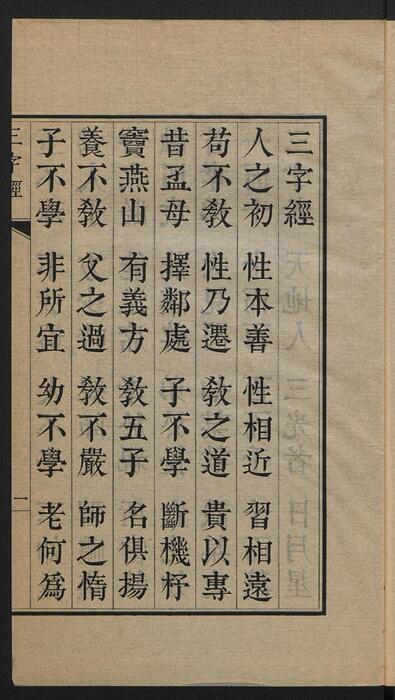 三字經
人之初 性本善 性相近 習相遠
苟不敎 性乃遷 敎之道 貴以專
昔孟母 擇鄰處 子不學 斷機杼
竇燕山 有義方 敎五子 名俱揚
養不敎 父之過 敎不嚴 師之惰
子不學 非所宜 幼不學 老何爲
三字經
一